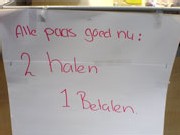 Alle paas goed nu:
2 halen
1 Betalen.